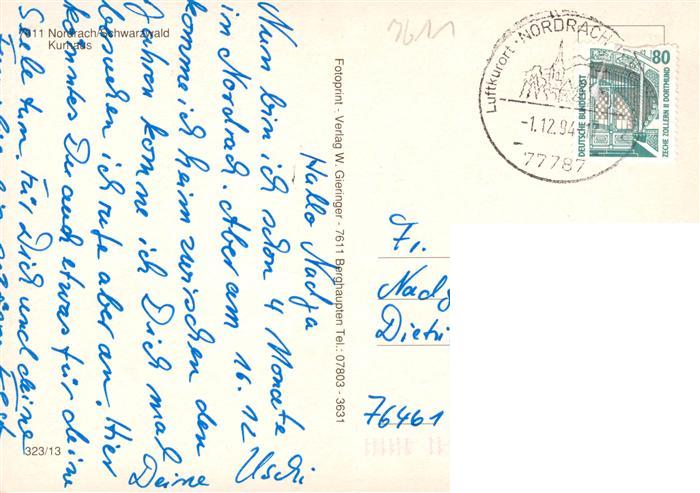 7611 Nordrach/Schwarzwald
Kurhaus
Hallo Nadja
Nun bin ich schon 4 Monate
in Nordrach. Aber am 16.12
komme ich heim zwischen den
Jahren komme ich Dich mal
besuchen ich rufe aber an. Hier
könntes Du auch etwas für deine
Seele tun. Für Dich und deine
Fest
Deine
Uschi
323/13
Fotoprint - Verlag W. Gieringer - 7611 Berghaupten Tel.: 07803 - 3631
7611
Luftkurort · NORDRACH
-1.12.94
77787
80
DEUTSCHE BUNDESPOST
ZECHE ZOLLERN II DORTMUND
Fr.
Nadj
Dietri
76461